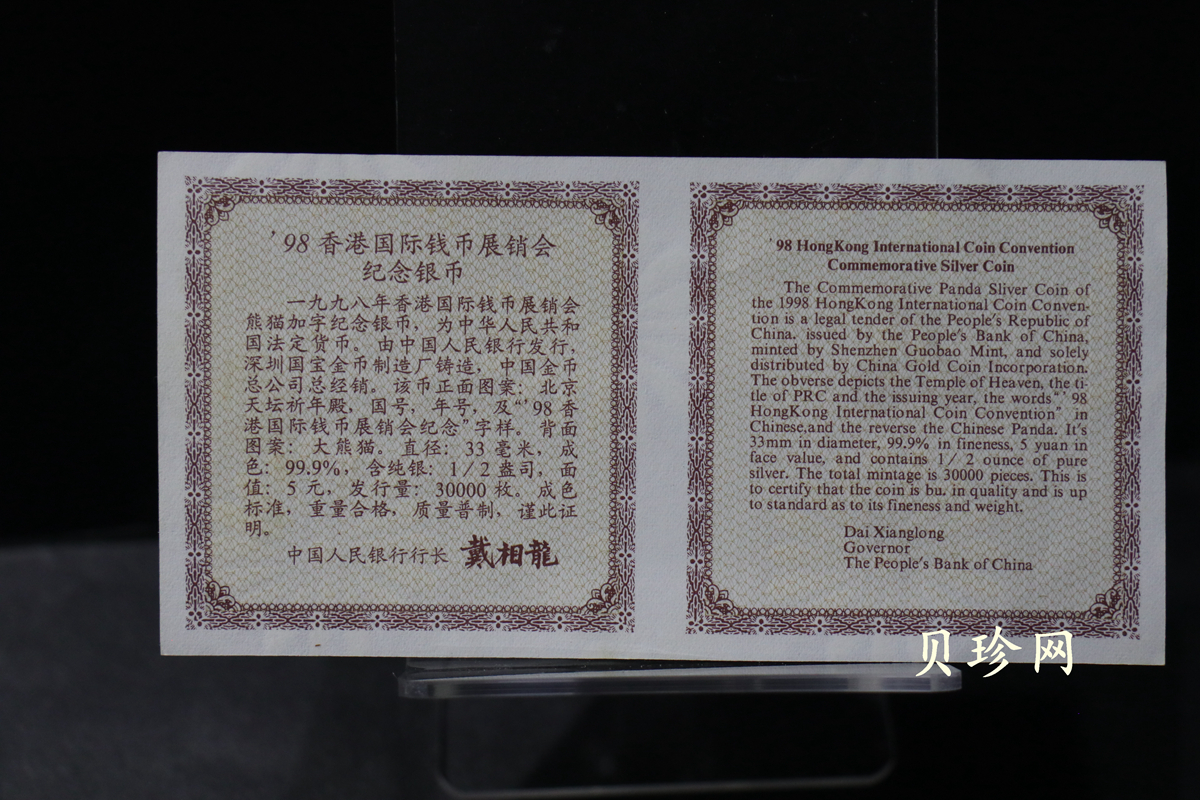 ’98 香港国际钱币展销会
纪念银币
一九九八年香港国际钱币展销会
熊猫加字纪念银币，为中华人民共和
国法定货币。由中国人民银行发行，
深圳国宝金币制造厂铸造，中国金币
总公司总经销。该币正面图案：北京
天坛祈年殿，国号，年号，及“’98 香
港国际钱币展销会纪念”字样。背面
图案：大熊猫。直径：33 毫米，成
色：99.9%，含纯银：1/2 盎司，面
值：5 元，发行量：30000 枚。成色
标准，重量合格，质量普制，谨此证
明。
中国人民银行行长 戴相龍
’98 HongKong International Coin Convention
Commemorative Silver Coin
The Commemorative Panda Sliver Coin of
the 1998 HongKong International Coin Conven-
tion is a legal tender of the People’s Republic of
China. issued by the People’s Bank of China,
minted by Shenzhen Guobao Mint, and solely
distributed by China Gold Coin Incorporation.
The obverse depicts the Temple of Heaven, the ti-
tle of PRC and the issuing year, the words“’ 98
HongKong International Coin Convention” in
Chinese,and the reverse the Chinese Panda. It’s
33mm in diameter, 99.9% in fineness, 5 yuan in
face value, and contains 1/2 ounce of pure
silver. The total mintage is 30000 pieces. This is
to certify that the coin is bu. in quality and is up
to standard as to its fineness and weight.
Dai Xianglong
Governor
The People’s Bank of China
贝珍网